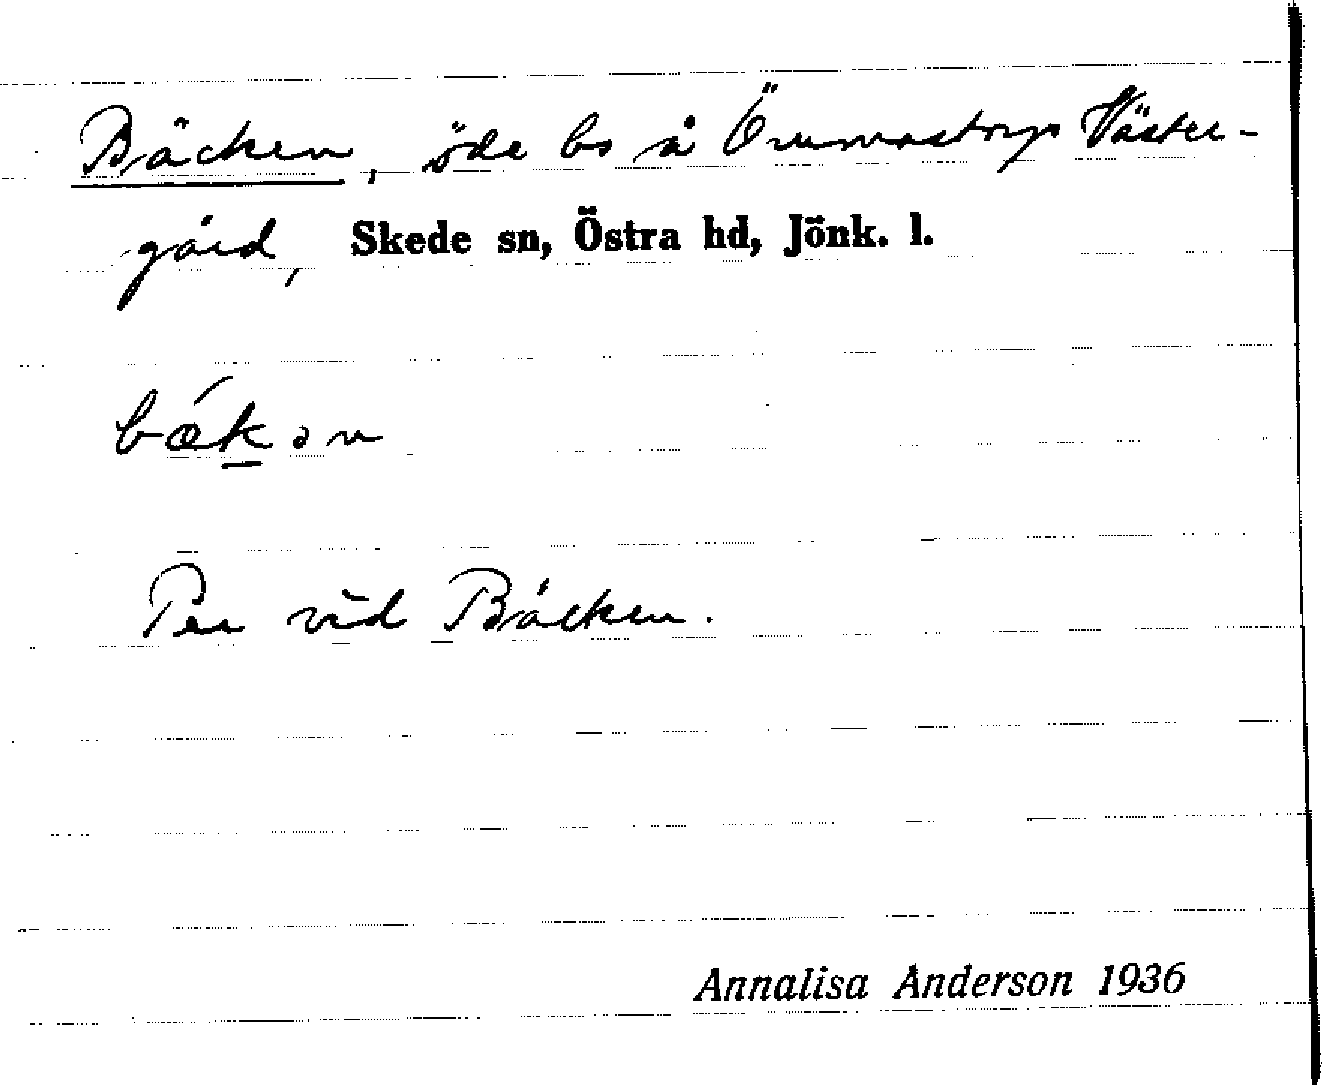 Bäcken, öde bs å Örumastorps Väster-
gård, Skede sn, Östra hd, Jönk. l.
bǽkən
Per vid Bäcken.
Annalisa Anderson 1936